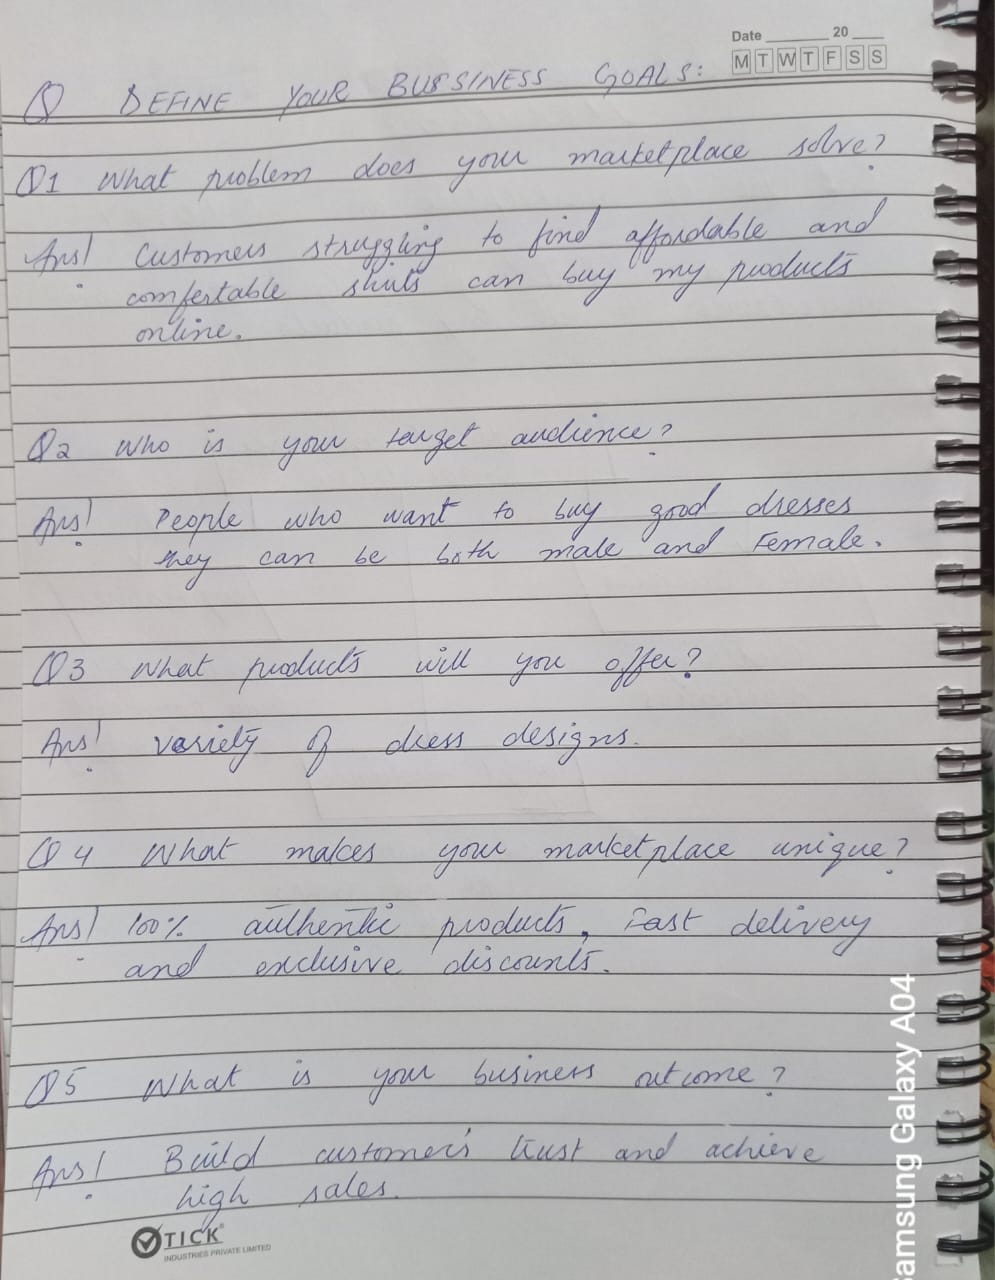 Date 20
M T W T F S S
Q DEFINE YOUR BUSSINESS GOALS:
Q1 What problem does your marketplace solve?
Ans! Customers struggling to find affordable and
comfertable shirts can buy my products
online.
Q2 Who is your target audience?
Ans! People who want to buy good dresses
they can be both male and Female.
Q3 What products will you offer?
Ans! variety of dress designs.
Q4 What makes your marketplace unique?
Ans! 100% authentic products, Fast delivery
and exclusive discounts.
Q5 What is your business outcome?
Ans! Build customer's trust and achieve
high sales.
TICK
INDUSTRIES PRIVATE LIMITED
amsung Galaxy A04